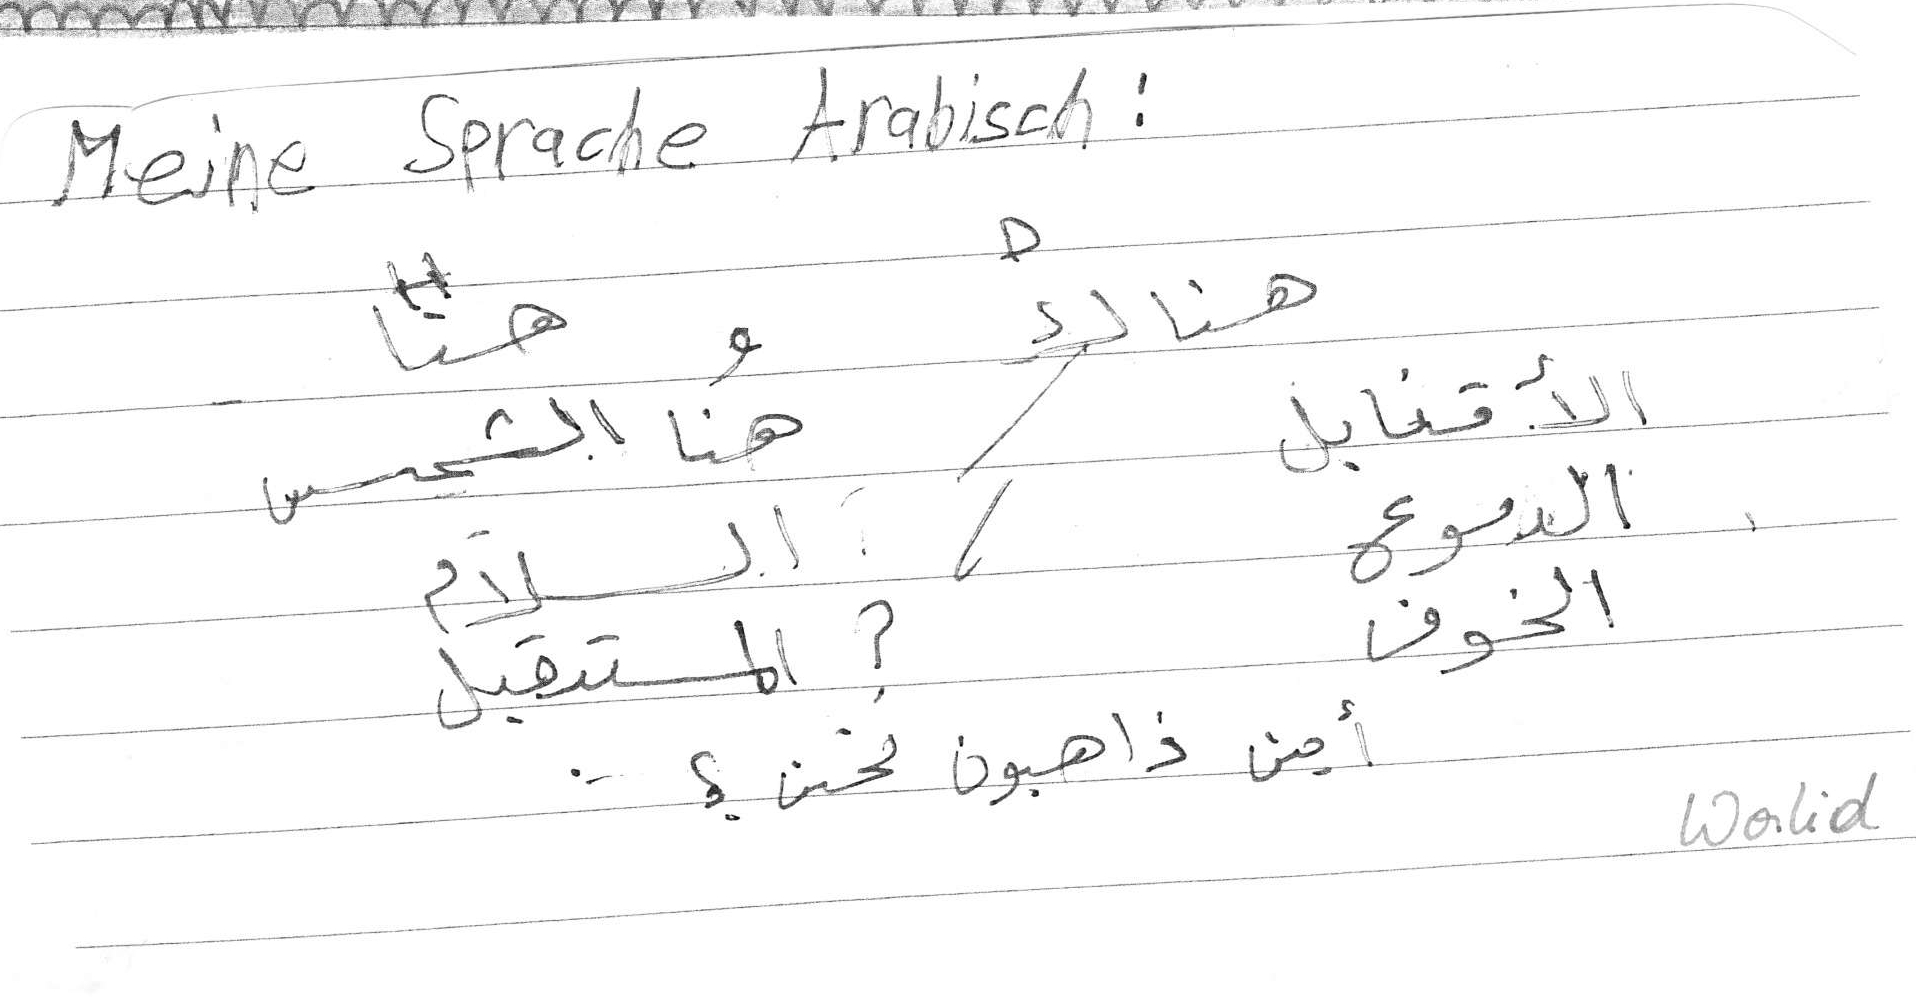 Meine Sprache Arabisch:
D H
هنالك و هنا
الأقنابل هنا الشمس
الدموع السلام
الخوف المستقبل ?
أين ذاهبون نحن ؟
Walid